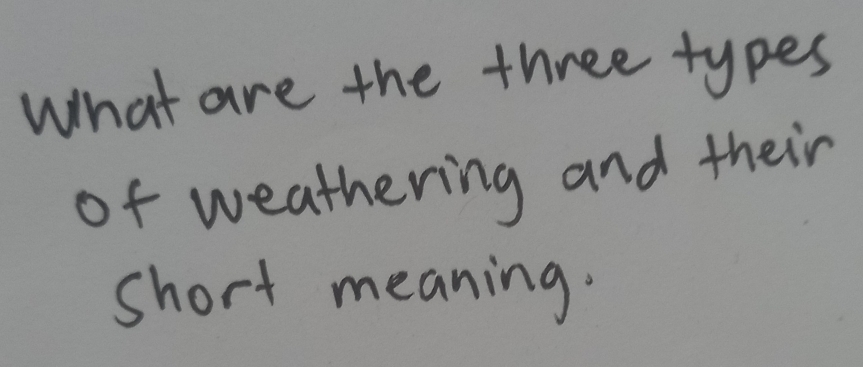 What are the three types
of weathering and their
short meaning.